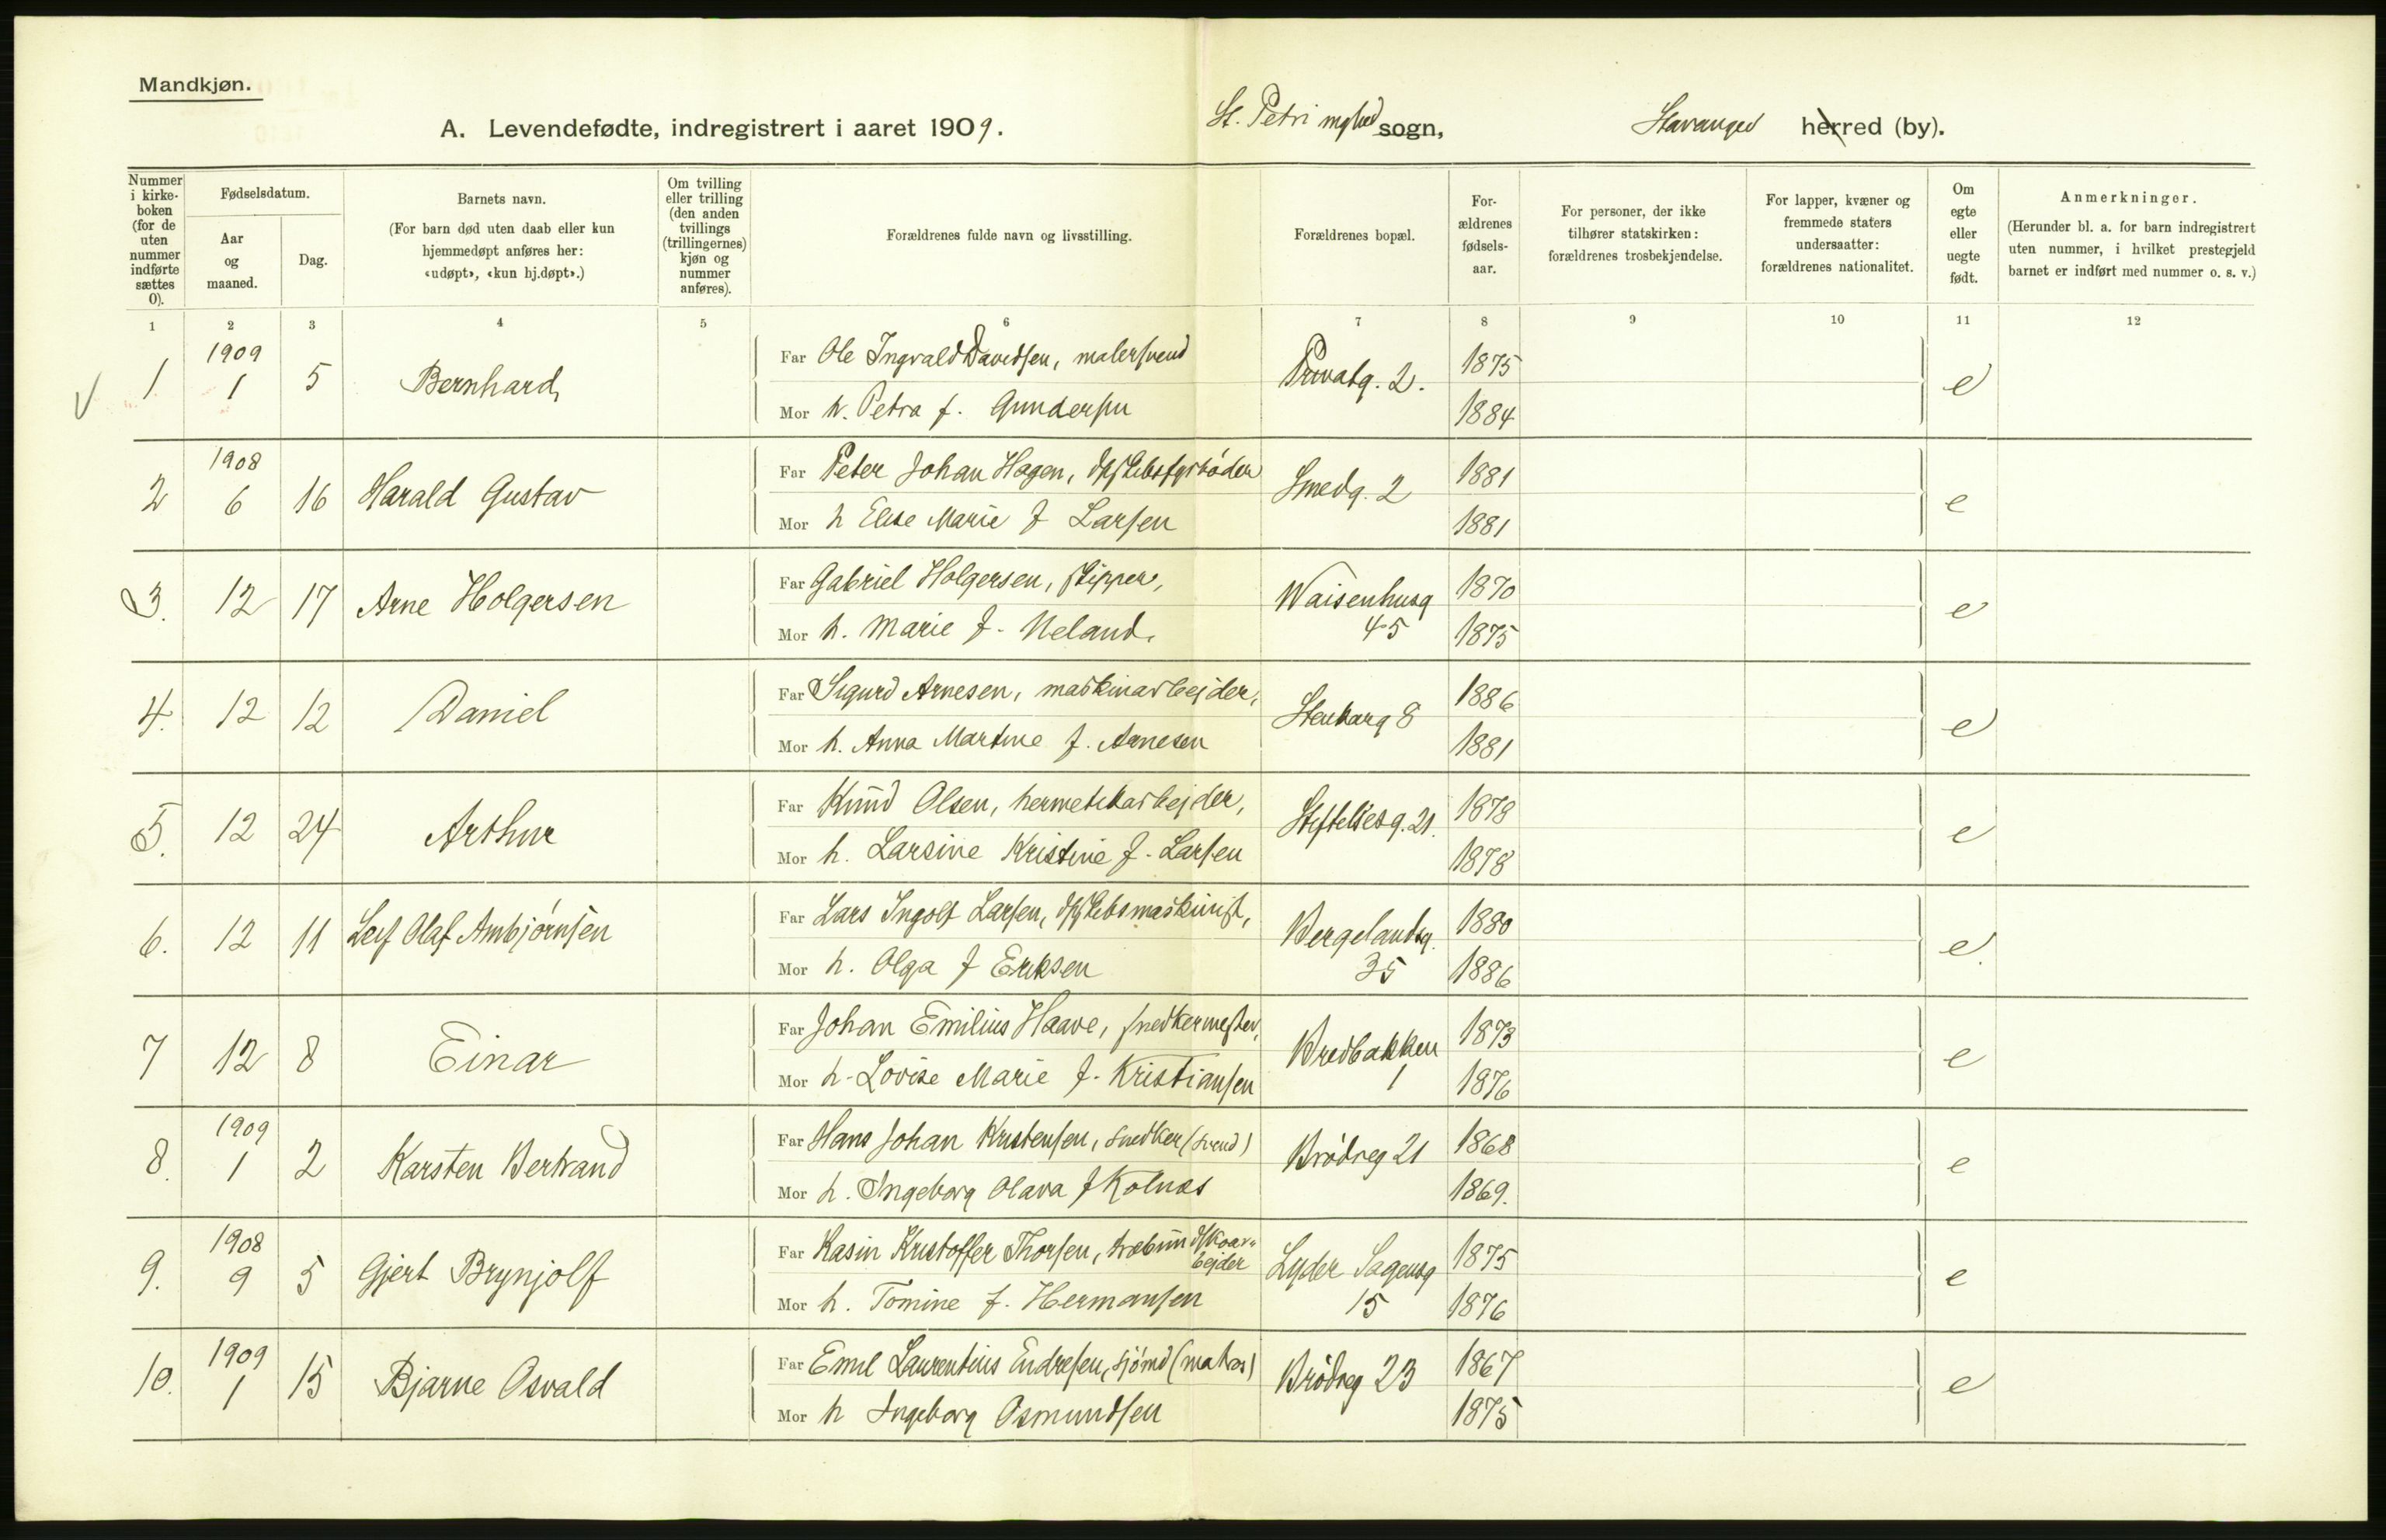 Mandkjøn.
A. Levendefødte, indregistrert i aaret 1909.
St. Petri sogn, Stavanger herred (by).
Nummer i kirkeboken (for de uten nummer indførte sættes 0).
Fødselsdatum.
Aar og maaned.
Dag.
Barnets navn.
(For barn død uten daab eller kun hjemmedøpt anføres her: «udøpt», «kun hj.døpt».)
Om tvilling eller trilling (den anden tvillings (trillingernes) kjøn og nummer anføres).
Forældrenes fulde navn og livsstilling.
Forældrenes bopæl.
For-ældrenes fødsels-aar.
For personer, der ikke tilhører statskirken: forældrenes trosbekjendelse.
For lapper, kvæner og fremmede staters undersaatter: forældrenes nationalitet.
Om egte eller uegte født.
Anmerkninger.
(Herunder bl. a. for barn indregistrert uten nummer, i hvilket prestegjeld barnet er indført med nummer o. s. v.)
1 2 3 4 5 6 7 8 9 10 11 12
1 1909 1 5 Bernhard Far Ole Ingvald Davidsen, malersvend Privatg. 2. 1875 e
Mor h. Petra f. Gundersen 1884
2 1908 6 16 Harald Gustav Far Peter Johan Hagen, dpskibsfyrbøder Smedg. 2 1881 e
Mor h Elise Marie f Larsen 1881
3. 12 17 Arne Holgersen Far Gabriel Holgersen, skipper, Waisenhusg 45 1870 e
Mor h. Marie f. Meland. 1875
4. 12 12 Daniel Far Sigurd Arnesen, maskinarbejder, Stenkarg 8 1886 e
Mor h. Anna Martine f. Arnesen 1881
5. 12 24 Arthur Far Knud Olsen, hermetikarbejder, Stiftelsesg. 21. 1878 e
Mor h. Larsine Kristine f. Larsen 1878
6. 12 11 Leif Olaf Ambjørnsen Far Lars Ingolf Larsen, dpskibsmaskinist, Bergelandsg. 35 1880 e.
Mor h. Olga f Eriksen 1886
7 12 8 Einar Far Johan Emilius Haave, snedkermester, Bredbakken 1 1873 e
Mor h. Lovise Marie f. Kristiansen 1876
8. 1909 1 2 Karsten Bertrand Far Hans Johan Kristensen, snedker (svend) Brødreg 21 1868 e
Mor h. Ingeborg Olava f Kolnes 1869.
9. 1908 9 5 Gjert Brynjolf Far Kasin Kristoffer Thorsen, træbundskoarbejder Lyder Sagensg 15 1875 e
Mor h. Tomine f. Hermansen 1876
10. 1909 1 15 Bjarne Osvald Far Emil Laurentius Endresen, sjømd (matros) Brødreg 23 1867 e
Mor h Ingeborg Osmundsen 1875